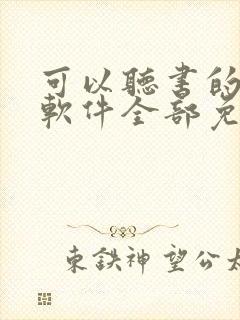 可以聽書的
軟件全部免
東鉄神望公太